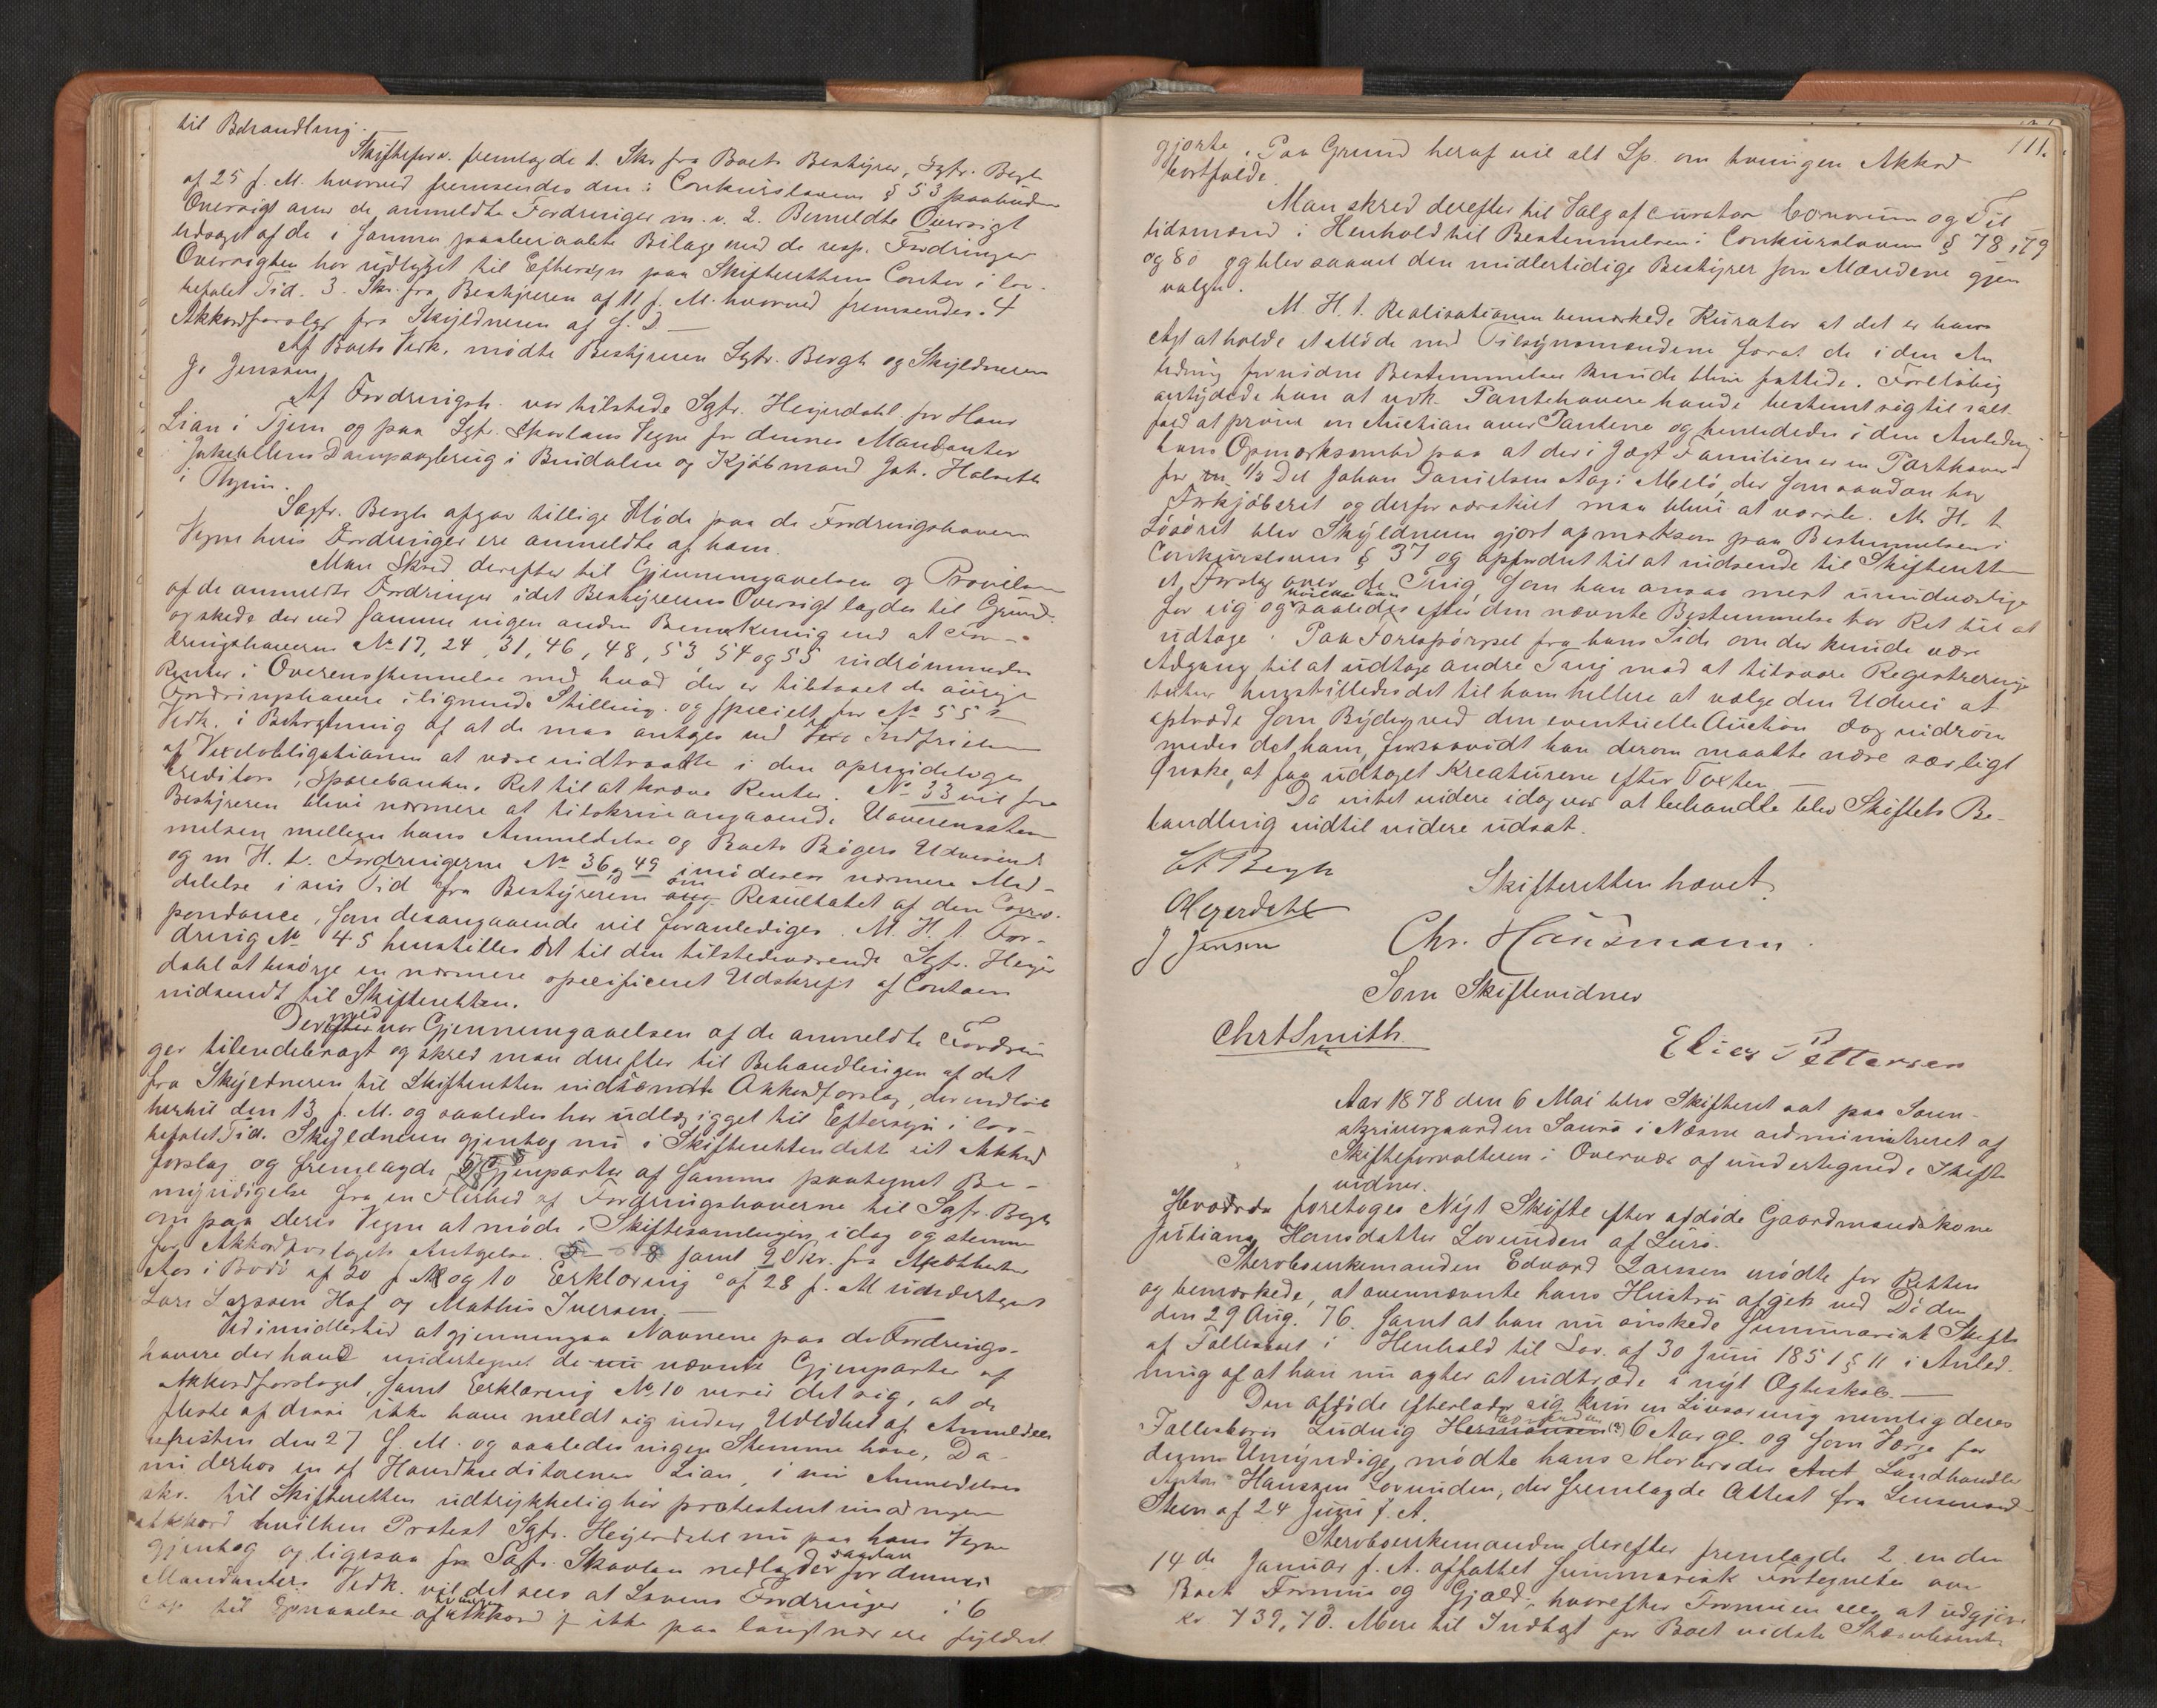 til Behandling.
Skifteforv. fremlagde 1. Skr. fra Boets Bestyrer, Sgfr. Bergh
af 25 f. M. hvorved fremsendes den i Conkursloven § 53 paabudne
Oversigt over de anmeldte Fordringer m. v. 2. Bemeldte Oversigt
ledsaget af de i samme paaberaabte Bilage med de resp. Fordringer
Oversigten har udligget til Eftersyn paa Skifterettens Contor i lov-
befalet Tid. 3. Skr. fra Bestyreren af 11 f. M. hvorved fremsendes. 4
Akkordforslag fra Skyldneren af s. D.
Af Boets Vedk. mødte Bestyreren Sgfr. Bergh og Skyldneren
J. Jenssen
Af Fordringsh. var tilstede Sgfr. Heyerdahl for Hans
Lian i Tjem og paa Sgfr. Skavlans Vegne for dennes Mandanter
Dampsagbrug i Bindalen og Kjøbmand Joh. Halseth
i Thjem.
Sagfr. Bergh afgav tillige Møde paa de Fordringshaveres
Vegne hvis Fordringer ere anmeldte af ham.
Man skred derefter til Gjennemgaaelsen og Prøvelsen
af de anmeldte Fordringer idet Bestyrerens Oversigt lagdes til Grund-
og skede der ved samme ingen anden Bemærkning end at For-
dringshaverne No 17, 24, 31, 46, 48, 53, 54 og 55 indrømmedes
Renter i Overensstemmelse med hvad der er tilstaaet de øvrige
Fordringshavere i lignende Stilling og specielt for No 55s
Vedk. i Betragtning af at de maa antages ved Indfrielsen
af Vexelobligationen at være indtraadte i den oprindelige
Creditors, Sparebankens Ret til at kræve Renter. No 33 vil fra
Bestyreren blive nærmere at tilskrive angaaende Uoverensstem
melsen mellem hans Anmeldelse og Boets Bøgers Udvisende
og m. H. t. Fordringerne No 36 og 49 imødesees nærmere Med-
delelse i sin Tid fra Bestyreren om Resultatet af den Corres-
pondance, som desangaaende vil foranlediges. M. H. t. For-
dring No 45 henstilles det til den tilstedeværende Sgfr. Heyer
dahl at besørge en nærmere specificeret Udskrift af Contoen
indsendt til Skifteretten.
Dermed var Gjennemgaaelsen af de anmeldte Fordrin
ger tilendebragt og skred man derefter til Behandlingen af det
fra Skyldneren til Skifteretten indsendte Akkordforslag, der indløb
hertil den 13 f. M. og saaledes har udligget til Eftersyn i lov-
befalet Tid. Skyldneren gjentog nu i Skifteretten dette sit Akkord
forslag og fremlagde 5/8 Gjenparter af samme paategnet Be-
myndigelse fra en Flerhed af Fordringshaverne til Sgfr. Bergh
om paa deres Vegne at møde i Skiftesamlingen idag og stemme
for Akkordforslagets Antagelse. 5 - 8 samt 9 Skr. fra Apotheker
Aas i Bodø af 20 f. M. og 10 Erklæring af 28 f. M. undertegnet
Lars Larssen Hof og Mathis Iversen. —
Ved imidlertid at gjennemgaa Navnene paa de Fordrings-
havere der have undertegnet de nu nævnte Gjenparter af
Akkordforslaget, samt Erklæring No 10 viser det sig, at de
fleste af disse ikke have meldt sig inden Udløbet af Anmeldels
esfristen den 27 f. M. og saaledes ingen Stemme have. Da
nu derhos en af Haandkreditorerne Lian, i sin Anmeldelses
skr. til Skifteretten udtrykkelig har protesteret imod nogen
Akkord hvilken Protest Sgfr. Heyerdahl nu paa hans Vegne
gjentog og ligesaa for Sagfr. Skavlan nedlagde saadan for dennes
Mandanters Vedk. vil det sees at Lovens Fordringer i 6
Cap. til Opnaaelse af tvungen Akkord ikke paa langt nær ere fyldest
111.
gjorte. Paa Grund heraf vil alt Sp. om tvungen Akkord
bortfalde.
Man skred derefter til Valg af curator bonorum og Til
lidsmænd i Henhold til Bestemmelsen i Conkursloven § 78, 79
og 80 og blev saavel den midlertidige Bestyrer som Mændene gjen
valgte.
M. H. t. Realisationen bemærkede Kurator at det er hans
Agt at holde et Møde med Tilsynsmændene forat de i den An
ledning fornødne Bestemmelser kunde blive fattede. Foreløbig
antydede han at vedk. Panthavere havde bestemt sig til ialt
fald at prøve en Auction over Panterne og henlededes i den Anledning
hans Opmærksomhed paa at der i Jægt Familien er en Parthaver
for 1/3 Del Johan Danielsen Aag i Melø, der som saadan har
Forkjøbsret og derfor særskilt maa blive at varsle. M. H. t.
Løsøret blev Skyldneren gjort opmærksom paa Bestemmelsen i
Conkurslovens § 37 og opfordret til at indsende til Skifteretten
et Forslag over de Ting som han ansaa mest uundværlige
for sig og hvilke han saaledes efter den nævnte Bestemmelse har Ret til at
udtage. Paa Forespørgsel fra hans Side om der kunde være
Adgang til at udtage andre Ting mod at tilsvare Registrerings
taxten henstilledes det til ham hellere at vælge den Udvei at
optræde som Byder ved den eventuelle Auction dog indrøm
medes det ham, forsaavidt han derom maatte nære særligt
Ønske, at faa udtaget Kreaturene efter Taxten. —
Da intet videre idag var at behandle blev Skiftets Be-
handling indtil videre udsat.
Bergh
Skifteretten hævet.
Heyerdahl
J Jensen
Chr. Hansmann.
Som Skiftevidner
Chr Smith.
Elias Pettersen
Aar 1878 den 6 Mai blev Skifteret sat paa Soren-
skrivergaarden Saura i Næsne administreret af
Skifteforvalteren i Overvær af undertegnede Skifte
vidner.
Hvorda foretoges Nyt Skifte efter afdøde Gaardmandskone
Juliana Hansdatter Lovunden af Lurø.
Stervboenkemanden Edvard Larssen mødte for Retten
og bemærkede, at ovennævnte hans Hustru afgik ved Døden
den 29 Aug. 76. samt at han nu ønskede summarisk Skifte
af Fællesboet i Henhold til Lov. af 30 Juni 1851 § 11 i Anled-
ning af at han nu agter at indtræde i nyt Ægteskab. —
Den afdøde efterlader sig kun en Livsarving nemlig deres
Fællesbarn Ludvig Hermansen 6 Aar gl. og som Værge for
denne Umyndige, mødte hans Morbroder Ant Landhandler
Anton Hanssen Lovunden, der fremlagde Attest fra Lensmand
Steen af 24 Juni f. A.
Stervboenkemanden derefter fremlagde 2 en den
14de Januar f. A. affattet summarisk Fortegnelse over
Boets Formue og Gjæld, hvorefter Formuen sees at udgjøre
Kr 739,70. Mere til Indtægt for Boet vidste Stervboenke-